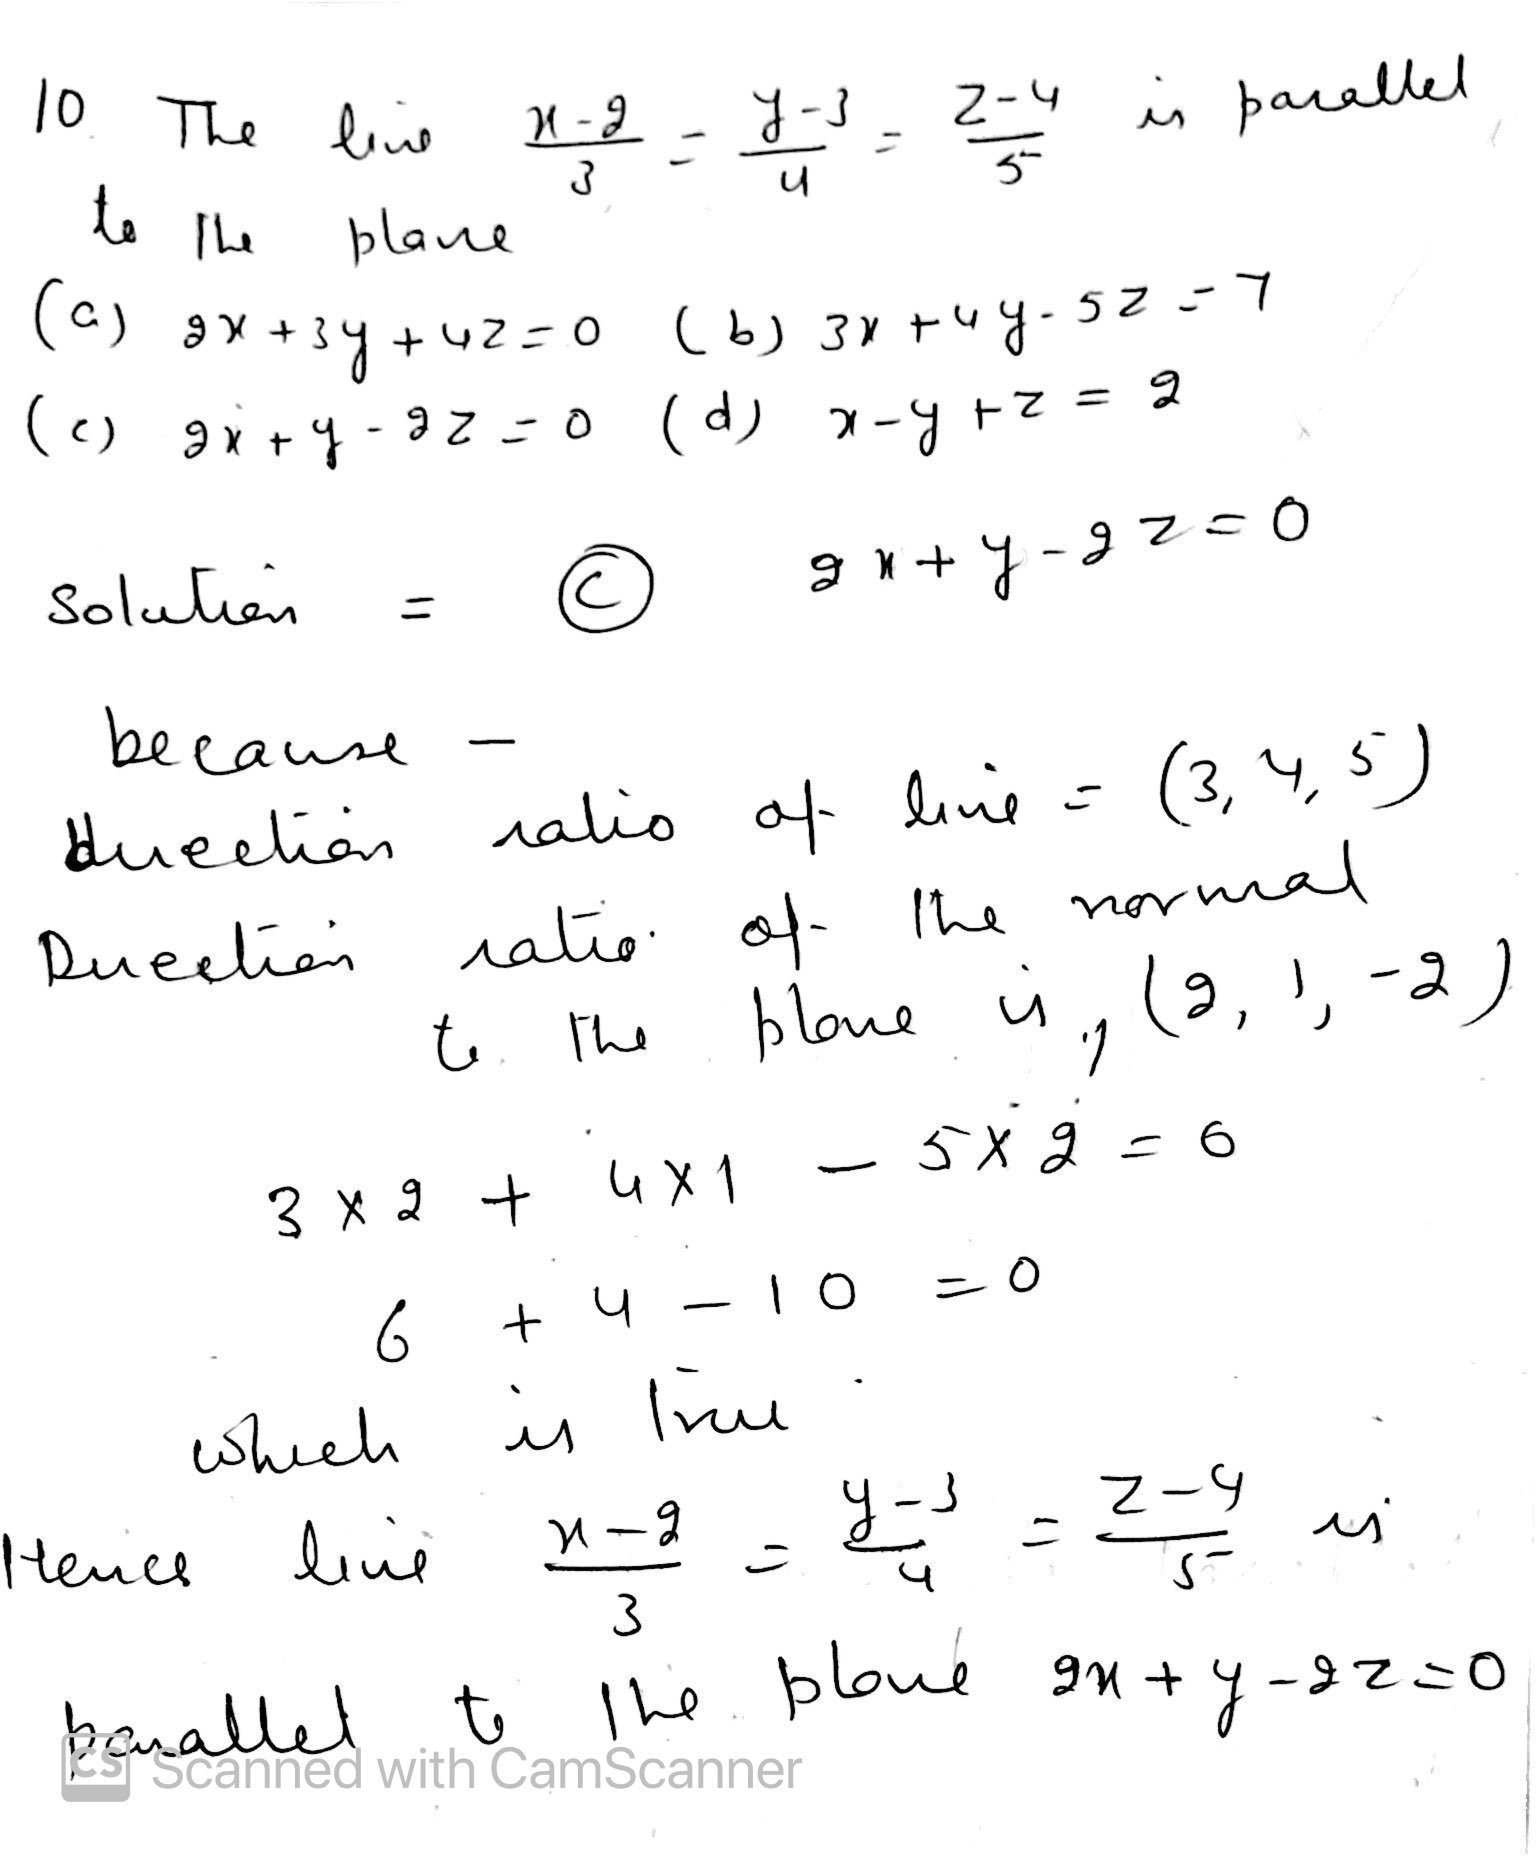 10. The line x-2/3 = y-3/4 = z-4/5 is parallel
to the plane
(a) 2x+3y+4z=0 (b) 3x+4y-5z=7
(c) 2x+y-2z=0 (d) x-y+z=2
Solution = (C) 2x+y-2z=0
because -
direction ratio of line = (3, 4, 5)
Direction ratio of the normal
to the plane is, (2, 1, -2)
3×2 + 4×1 - 5×2 = 0
6 + 4 - 10 = 0
which is true
Hence line x-2/3 = y-3/4 = z-4/5 is
parallel to the plane 2x+y-2z=0
CS Scanned with CamScanner